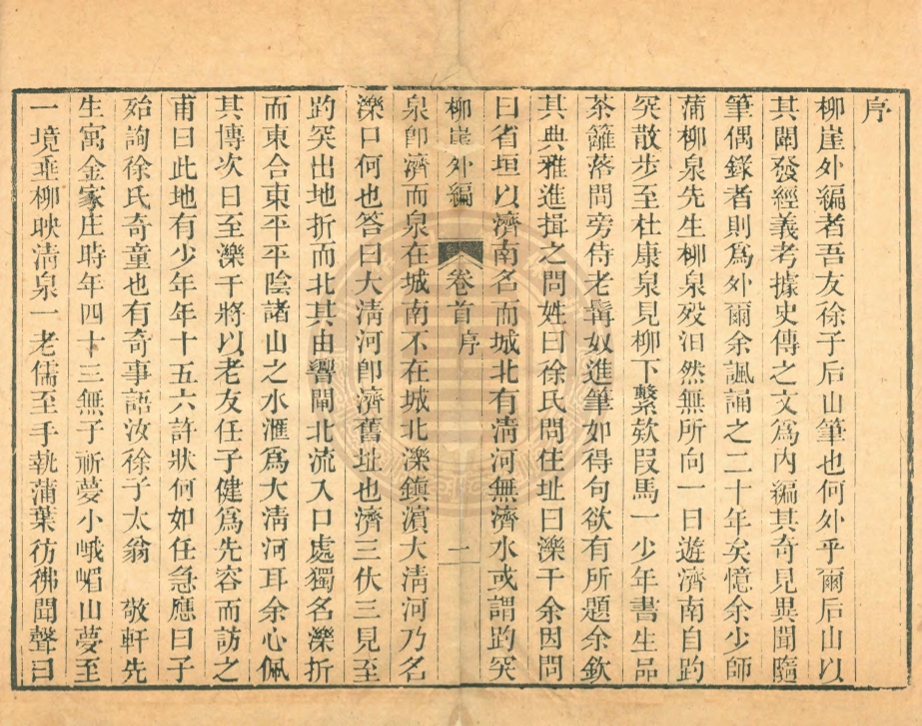 序
柳崖外編者吾友徐子后山筆也何外乎爾后山以
其闡發經義考據史傳之文爲內編其奇見異聞隨
筆偶錄者則爲外爾余諷誦之二十年矣憶余少師
蒲柳泉先生柳泉歿汩然無所向一日遊濟南自趵
突散步至杜康泉見柳下繫欵叚馬一少年書生品
茶籬落間旁侍老髯奴進筆如得句欲有所題余欽
其典雅進揖之問姓曰徐氏問住址曰濼干余因問
曰省垣以濟南名而城北有清河無濟水或謂趵突
柳崖外編 卷首 序 一
泉卽濟而泉在城南不在城北濼鎮濱大清河乃名
濼口何也答曰大清河卽濟舊址也濟三伏三見至
趵突出地折而北其由響閘北流入口處獨名濼折
而東合東平平陰諸山之水滙爲大清河耳余心佩
其博次日至濼干將以老友任子健爲先容而訪之
甫曰此地有少年年十五六許狀何如任急應曰子
殆詢徐氏奇童也有奇事語汝徐子太翁 敬軒先
生寓金家庄時年四十三無子祈夢小峨嵋山夢至
一境垂柳映清泉一老儒至手執蒲葉彷彿聞聲曰